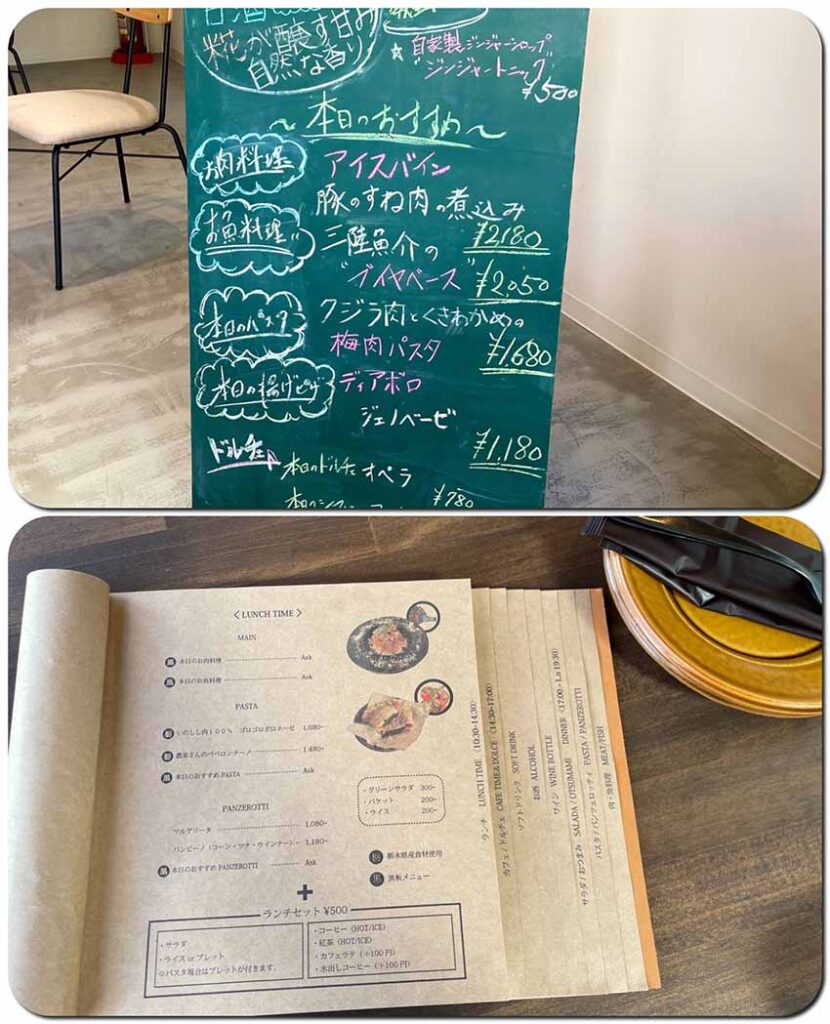 甘酒
糀が醸す甘み
自然な香り
☆自家製ジンジャーシロップ
"ジンジャートニック"
¥500
～本日のおすすめ～
お肉料理 アイスバイン
豚のすね肉の煮込み
¥2,180
お魚料理 三陸魚介の
"ブイヤベース" ¥2,050
本日のパスタ クジラ肉とくきわかめの
梅肉パスタ ¥1,680
本日の揚げピザ ディアボロ
ジェノベーゼ
¥1,180
ドルチェ 本日のドルチェ オペラ
¥780
〈 LUNCH TIME 〉
MAIN
黒 本日のお肉料理 Ask
黒 本日のお肉料理 Ask
PASTA
栃 いのしし肉100% ゴロゴロボロネーゼ 1,680-
栃 農家さんのペペロンチーノ 1,480-
黒 本日のおすすめ PASTA Ask
PANZEROTTI
マルゲリータ 1,080-
バンビーノ（コーン・ツナ・ウインナー） 1,180-
黒 本日のおすすめ PANZEROTTI Ask
・グリーンサラダ 300-
・バケット 200-
・ライス 200-
栃 栃木県産食材使用
黒 黒板メニュー
+
ランチセット ¥500
・サラダ
・ライス or ブレット
※パスタ場合はブレットが付きます。
・コーヒー（HOT/ICE）
・紅茶（HOT/ICE）
・カフェラテ（＋100円）
・水出しコーヒー（＋100円）
ランチ LUNCH TIME 〈10:30-14:30〉
カフェ / ドルチェ CAFE TIME & DOLCE 〈14:30-17:00〉
ソフトドリンク SOFT DRINK
お酒 ALCOHOL
ワイン WINE BOTTLE
サラダ / おつまみ SALADA / OTSUMAMI DINNER 〈17:00 - Lo 19:30〉
パスタ / パンツェロッティ PASTA / PANZEROTTI
肉・魚料理 MEAT/FISH